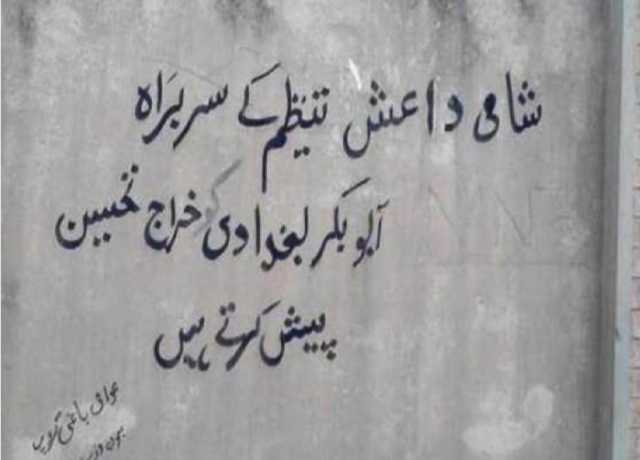 شامی داعش تنظیم کے سربراہ
ابو بکر بغدادی کو خراج تحسین
پیش کرتے ہیں
باغی گروپ